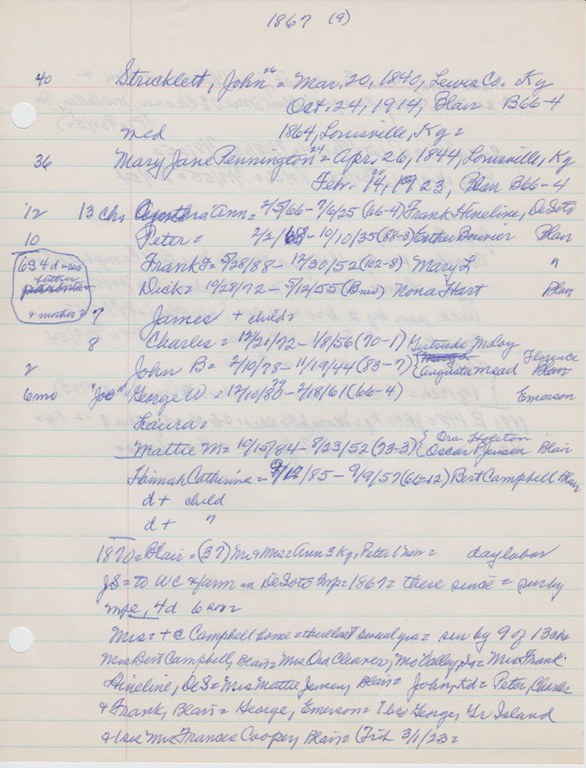 1867 (9)
40 Stricklett, John²⁶ = Mar. 20, 1840, Lewis Co. Ky
Oct. 24, 1914, Blair B66-4
med 1864, Louisville, Ky =
36 Mary Jane Pennington²⁴ = Apr. 26, 1844, Louisville, Ky
Febr. 14, 1923, Blair B66-4
12 13 Chs Ann = 2/5/66 - 7/6/25 (66-4) Frank Hineline, DeSoto
10 Peter = 2/2/68 - 10/10/35 (88-3) Esther Blair
Frank J = 5/28/88 - 12/30/52 (102-8) Mary L "
Dick = 10/28/72 - 5/12/55 (B mas) Nona Hart Blair
69 4 d
father
& mother = 7 James + child =
8 Charles = 12/21/72 - 1/8/56 (70-1) Gertrude
2 John B = 2/10/78 - 11/19/44 (83-7) Augusta Mead Florence Blair
6 mo "Joe" George W = 12/10/80 - 2/18/61 (66-4) Emerson
Laura =
Mattie M = 10/15/84 - 8/23/52 (73-3) Ora
Oscar P Jensen Blair
Hannah Catherine = 9/12/85 - 9/9/57 (66-12) Bert Campbell Blair
d + child
d + "
1870 = Blair = (37) Mr & Mrs = Ann 3 Ky, Peter 1 = day labor
JS = to WC & farm in DeSoto = 1867 = there since = sur by
4d 6 son
Mrs = + @ Campbell home = the last several yrs = sur by 9 of 13 chs
Mrs Bert Campbell, Blair = Mrs Ora Cleaver, Mo Valley, Ia = Mrs Frank
Hineline, DeS = Mrs Mattie Jensen, Blair = John, = Peter, Charles
& Frank, Blair = George, Emerson = 1 bro George, Gr Island
& 1 sis Mrs Frances Cooper, Blair = (Trib 3/1/23 =